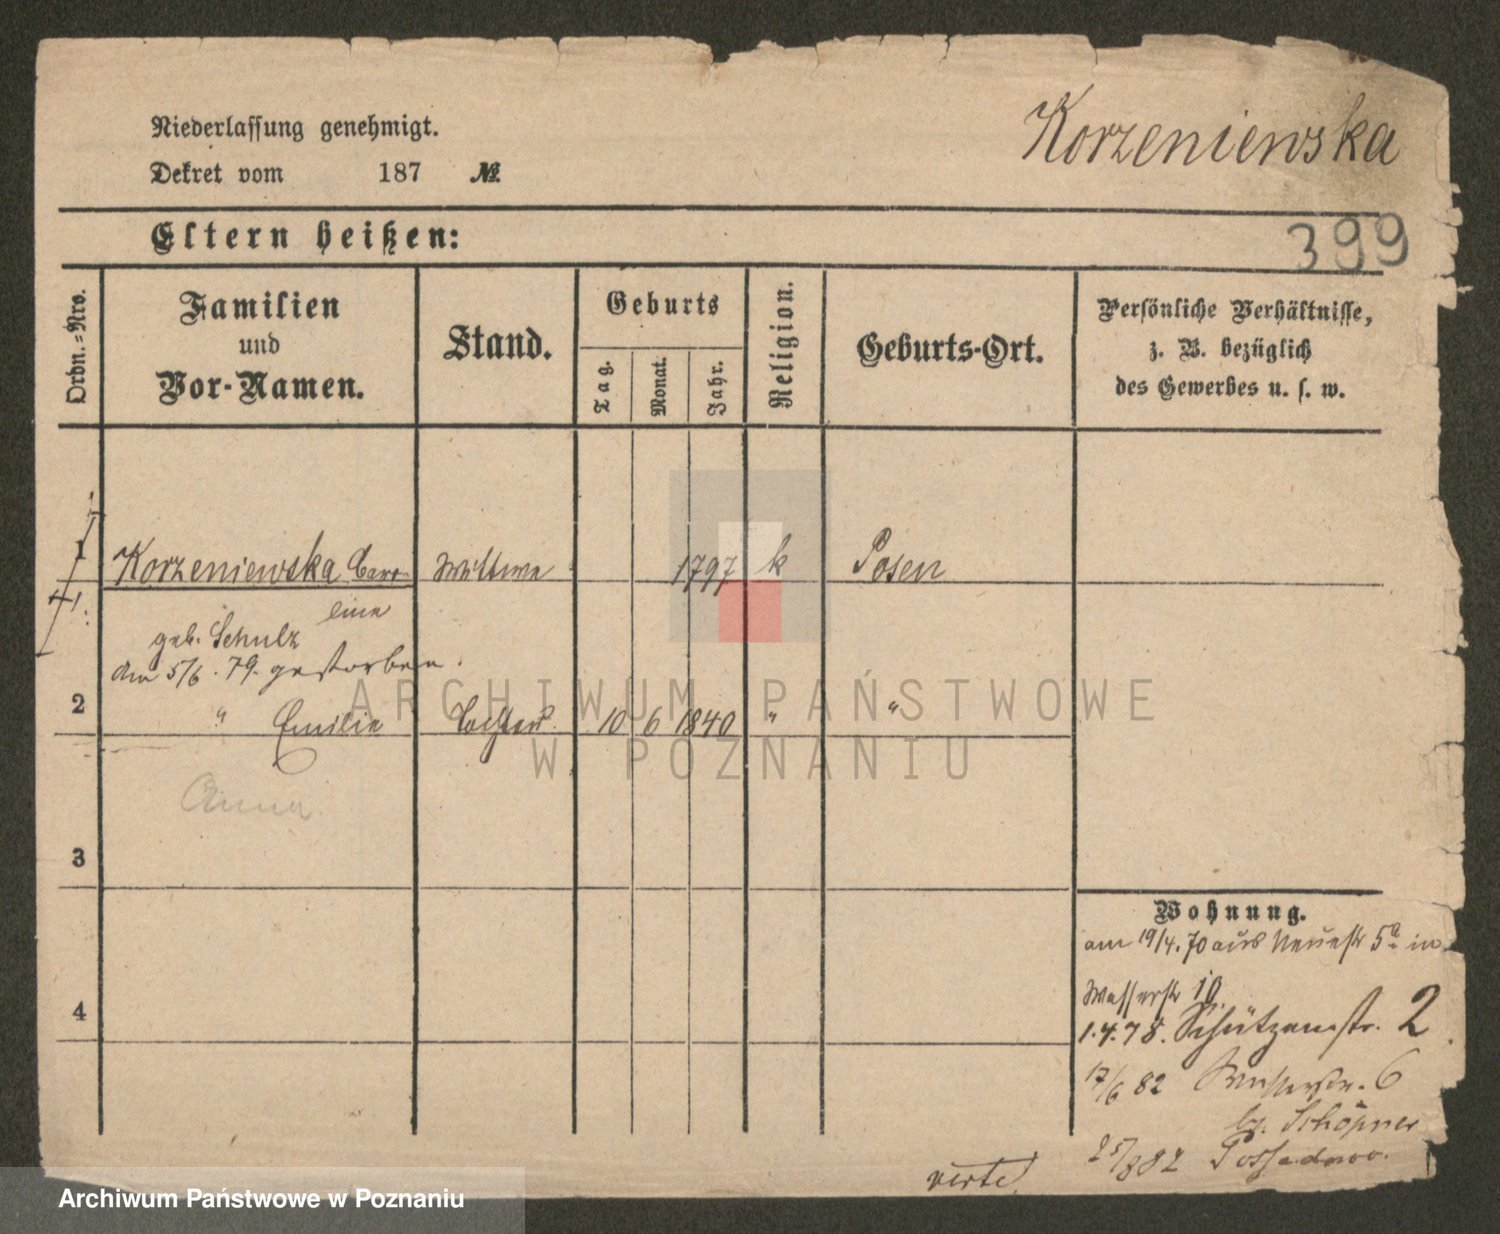 Niederlassung genehmigt.
Dekret vom 187 №
Korzeniewska
399
Eltern heißen:
Ordn.-Nro.
Familien
und
Vor-Namen.
Stand.
Geburts
Tag.
Monat.
Jahr.
Religion.
Geburts-Ort.
Persönliche Verhältnisse,
z. B. bezüglich
des Gewerbes u. s. w.
1 Korzeniewska Caro- Wittwe 1797 k Posen
line
geb. Schulz
den 5/6. 79. gestorben.
2 " Emilie Tochter. 10 6 1840 " "
Anna
3
4
Wohnung.
am 19/4. 70 aus Neuestr 5a in
Wasserstr 10.
1.4.78. Schützenstr. 2
17/6 82 Wasserstr. 6
bz. Schöpner
25/8 82 Possadowo.
verte!
ARCHIWUM PAŃSTWOWE
W POZNANIU
Archiwum Państwowe w Poznaniu